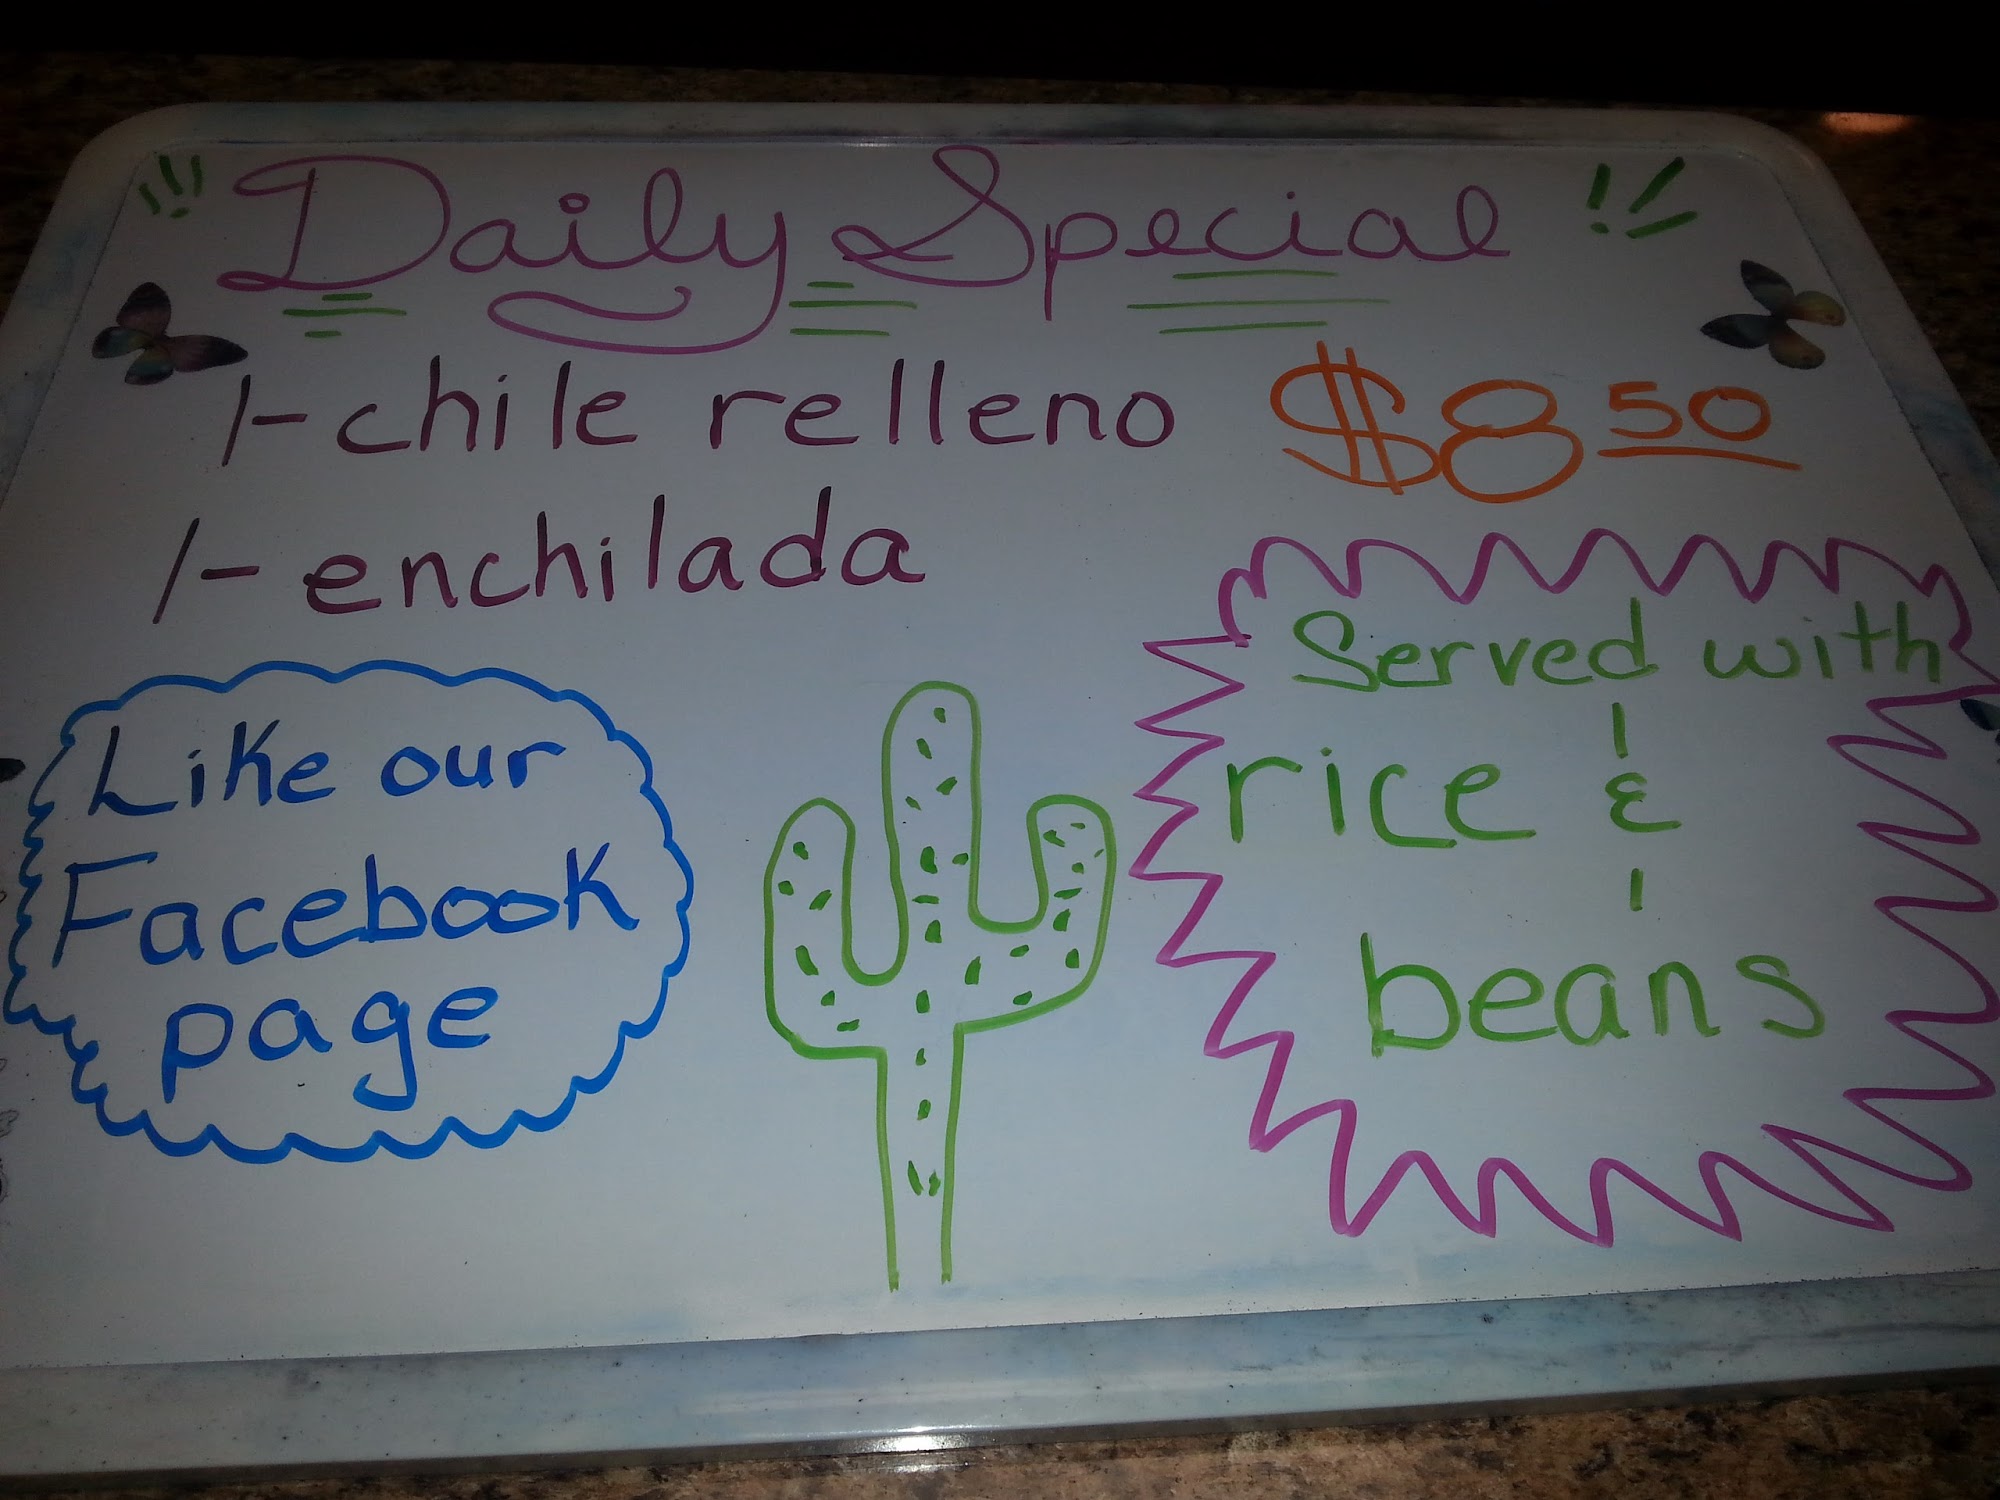 !!! Daily Special !!!
1-chile relleno $8 50
1-enchilada
Like our
Facebook
page
Served with
rice &
beans